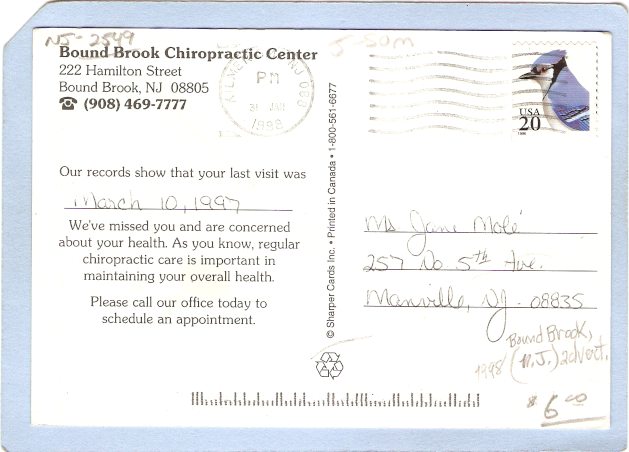 NJ-2549
J-Som
Bound Brook Chiropractic Center
222 Hamilton Street
Bound Brook, NJ 08805
☎ (908) 469-7777
PM
1998
USA
20
Our records show that your last visit was
March 10, 1997
We've missed you and are concerned
about your health. As you know, regular
chiropractic care is important in
maintaining your overall health.
Please call our office today to
schedule an appointment.
© Sharper Cards Inc. • Printed in Canada • 1-800-561-6677
Ms Jane Molé
257 No 5th Ave.
Manville, NJ. 08835
Bound Brook,
1998 (N.J.) advert.
$6.00